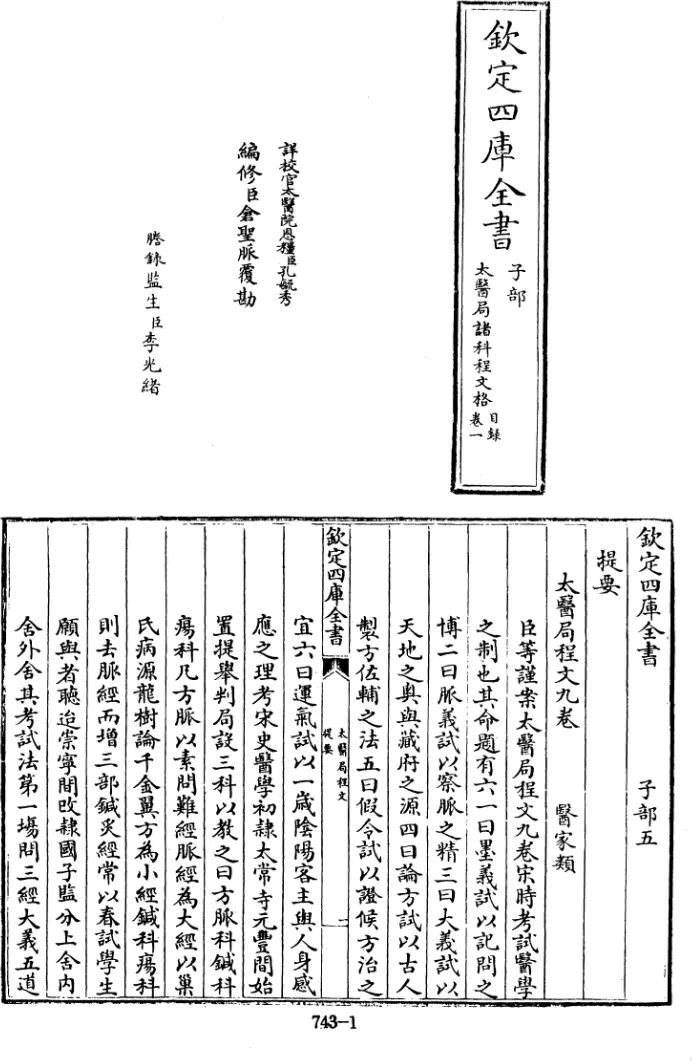 欽定四庫全書
子部
太醫局諸科程文格
目錄
卷一
詳校官太醫院恩糧臣孔毓秀
編修臣倉聖脈覆勘
謄錄監生臣李光緒
欽定四庫全書
子部五
提要
醫家類
太醫局程文九卷
臣等謹案太醫局程文九卷宋時考試醫學
之制也其命題有六一曰墨義試以記問之
博二曰脈義試以察脈之精三曰大義試以
天地之奥與藏府之源四曰論方試以古人
製方佐輔之法五曰假令試以證候方治之
欽定四庫全書
太醫局程文
提要
一
宜六曰運氣試以一歲陰陽客主與人身感
應之理考宋史醫學初隸太常寺元豐間始
置提舉判局設三科以教之曰方脈科鍼科
瘍科凡方脈以素問難經脈經為大經以巢
氏病源龍樹論千金翼方為小經鍼科瘍科
則去脈經而增三部鍼灸經常以春試學生
願與者聽迨崇寧間改隸國子監分上舍內
舍外舍其考試法第一場問三經大義五道
743-1